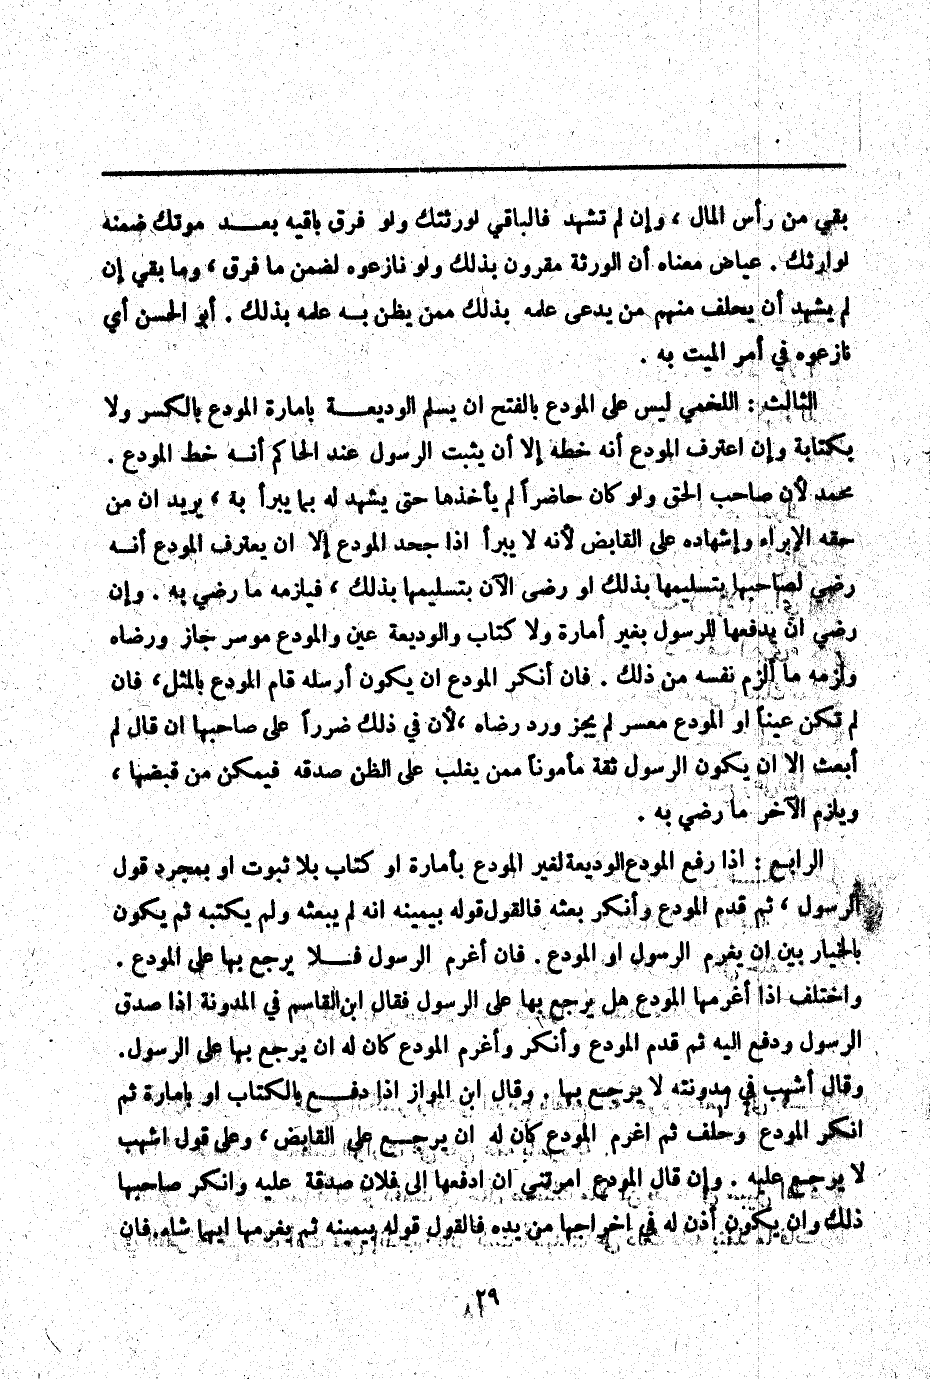 بقي من رأس المال ، وإن لم تشهد فالباقي لورثتك ولو فرق باقيه بعـــد موتك ضمنه
لوارثك . عياض معناه أن الورثة مقرون بذلك ولو نازعوه لضمن ما فرق ، وما بقي إن
لم يشهد أن يحلف منهم من يدعى علمه بذلك ممن يظن بــه علمه بذلك . أبو الحسن أي
نازعوه في أمر الميت به .
الثالث : اللخمي ليس على المودع بالفتح ان يسلم الوديعـــة بإمارة المودع بالكسر ولا
بكتابة وإن اعترف المودع أنه خطه إلا أن يثبت الرسول عند الحاكم أنــه خط المودع .
محمد لأن صاحب الحق ولو كان حاضراً لم يأخذها حتى يشهد له بما يبرأ به ، يريد ان من
حقه الإبراء وإشهاده على القابض لأنه لا يبرأ اذا جحد المودع إلا ان يعترف المودع أنــه
رضي لصاحبها بتسليمها بذلك او رضى الآن بتسليمها بذلك ، فيلزمه ما رضي به . وإن
رضي ان يدفعها للرسول بغير أمارة ولا كتاب والوديعة عين والمودع موسر جاز ورضاه
ولزمه ما ألزم نفسه من ذلك . فان أنكر المودع ان يكون أرسله قام المودع بالمثل، فان
لم تكن عيناً او المودع معسر لم يجز ورد رضاه ،لأن في ذلك ضرراً على صاحبها ان قال لم
أبعث الا ان يكون الرسول ثقة مأموناً ممن يغلب على الظن صدقه فيمكن من قبضها ،
ويلزم الآخر ما رضي به .
الرابع : اذا رفع المودع الوديعة لغير المودع بأمارة او كتاب بلا ثبوت او بمجرد قول
الرسول ، ثم قدم المودع وأنكر بعثه فالقول قوله بيمينه انه لم يبعثه ولم يكتبه ثم يكون
بالخيار بين ان يغرم الرسول او المودع . فان أغرم الرسول فـــلا يرجع بها على المودع .
واختلف اذا أغرمها المودع هل يرجع بها على الرسول فقال ابن القاسم في المدونة اذا صدق
الرسول ودفع اليه ثم قدم المودع وأنكر وأغرم المودع كان له ان يرجع بها على الرسول.
وقال أشهب في مدونته لا يرجع بها . وقال ابن المواز اذا دفـــع بالكتاب او بإمارة ثم
انكر المودع وحلف ثم اغرم المودع كان له ان يرجـــع على القابض ، وعلى قول اشهب
لا يرجع عليه . وإن قال المودع امرتني ان ادفعها الى فلان صدقة عليه وانكر صاحبها
ذلك وان يكون أذن له في اخراجها من يده فالقول قوله بيمينه ثم يغرمها ايهما شاء.فان
٢٩